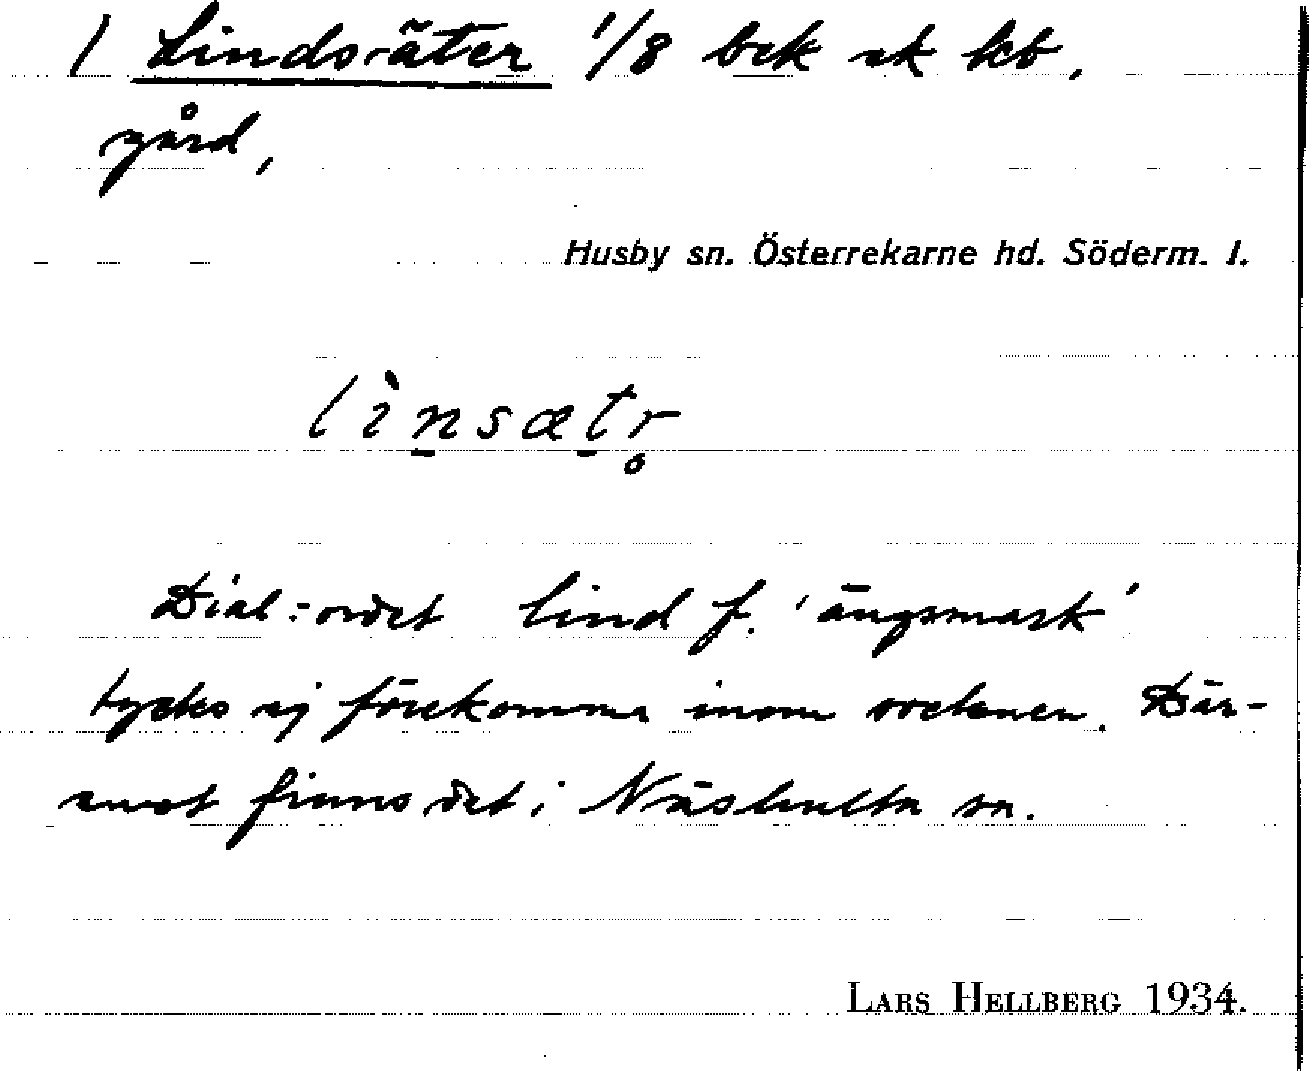 1 Lindsäter 1/8 bek ek kb,
gård,
Husby sn. Österrekarne hd. Söderm. l.
lìn̠sæt̠r̥
Dial.-ordet lind f. 'ängsmark'
tycks ej förekomma inom socknen. Där-
emot finns det i Näshulta sn.
LARS HELLBERG 1934.